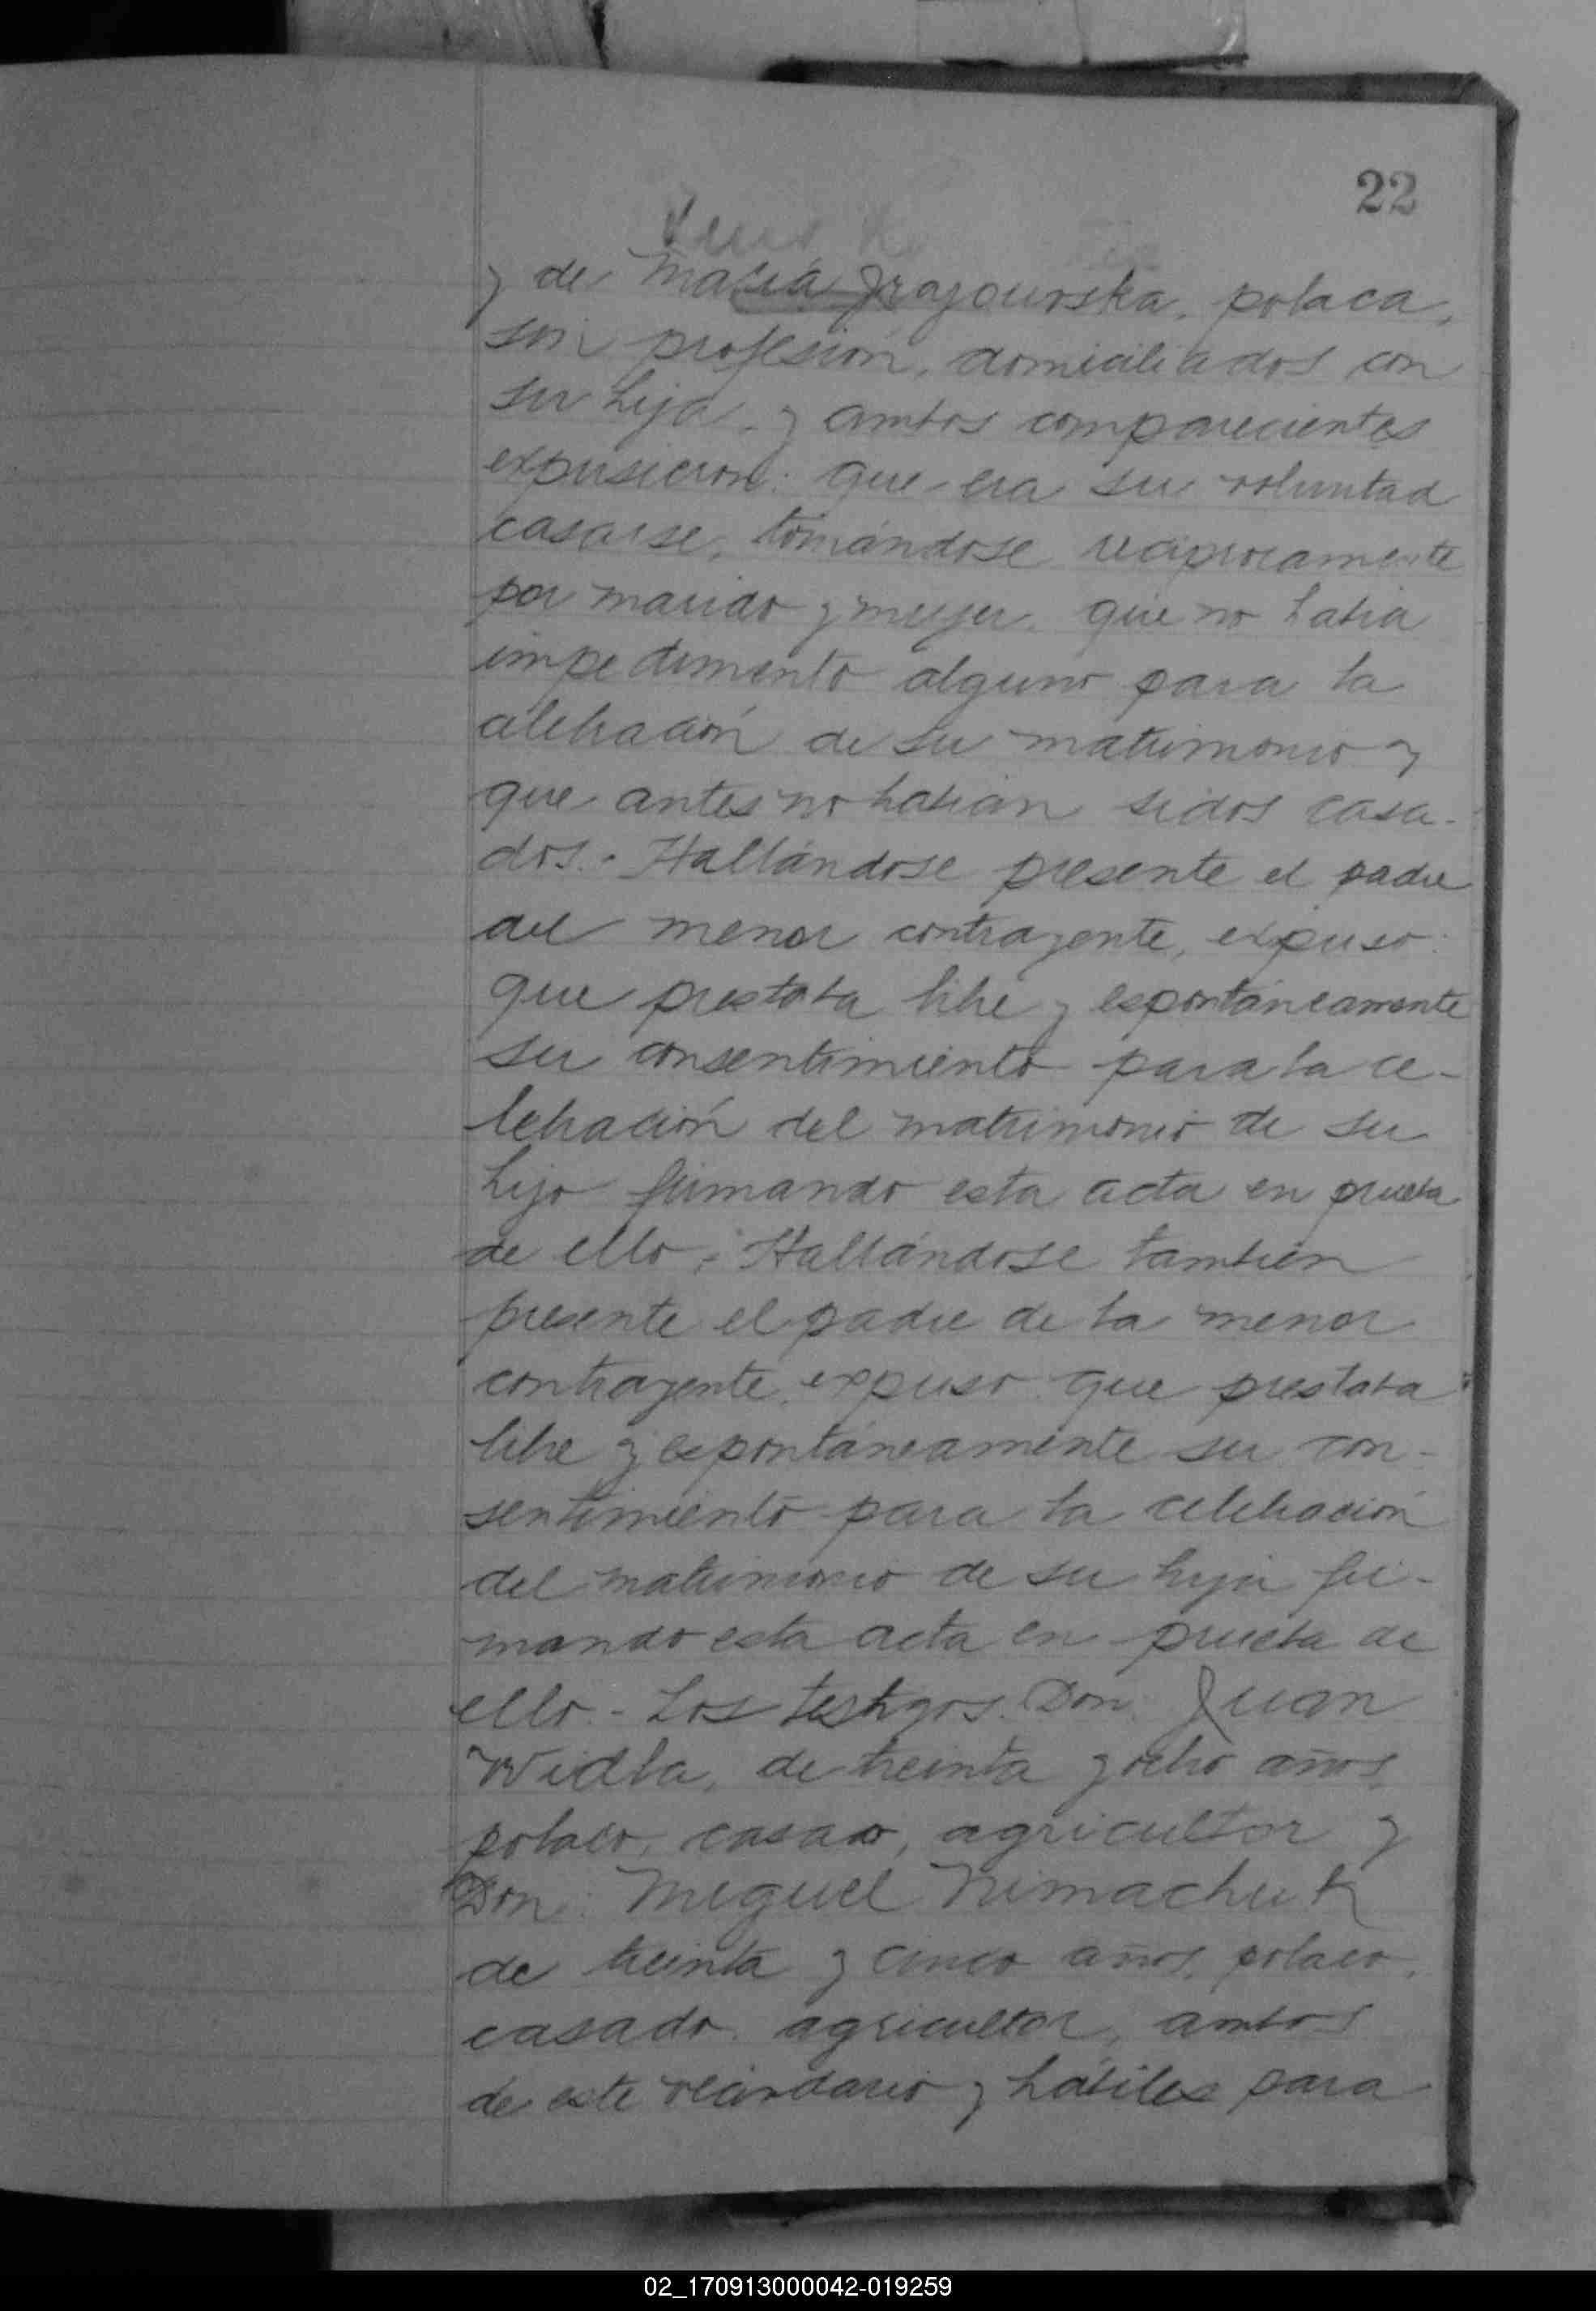 22
y de María Grajourska, polaca,
sin profesión, domiciliados con
su hija, y ambos comparecientes
expusieron: que era su voluntad
casarse, tomándose reciprocamente
por marido y mujer, que no había
impedimento alguno para la
celebración de su matrimonio y
que antes no habian sidos casa-
dos. - Hallándose presente el padre
del menor contrayente, expuso:
que prestaba libre y espontáneamente
su consentimiento para la ce-
lebración del matrimonio de su
hijo firmando esta acta en prueba
de ello. - Hallándose tambien
presente el padre de la menor
contrayente, expuso que prestaba
libre y espontáneamente su con-
sentimiento para la celebración
del matrimonio de su hija fir-
mando esta acta en prueba de
ello. - Los testigos Don Juan
Widla, de treinta y ocho años,
polaco, casado, agricultor y
Don Miguel Nimachuk
de treinta y cinco años, polaco,
casado, agricultor, ambos
de este vecindario y hábiles para
02_170913000042-019259